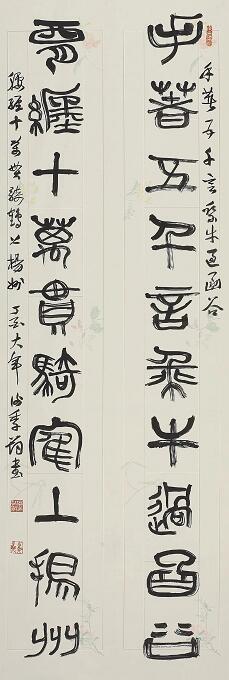 手著五千言乘牛過函谷
手著五千言乘牛過函谷
腰纏十萬貫騎鶴上揚州
腰纏十萬貫騎鶴上楊州 大年